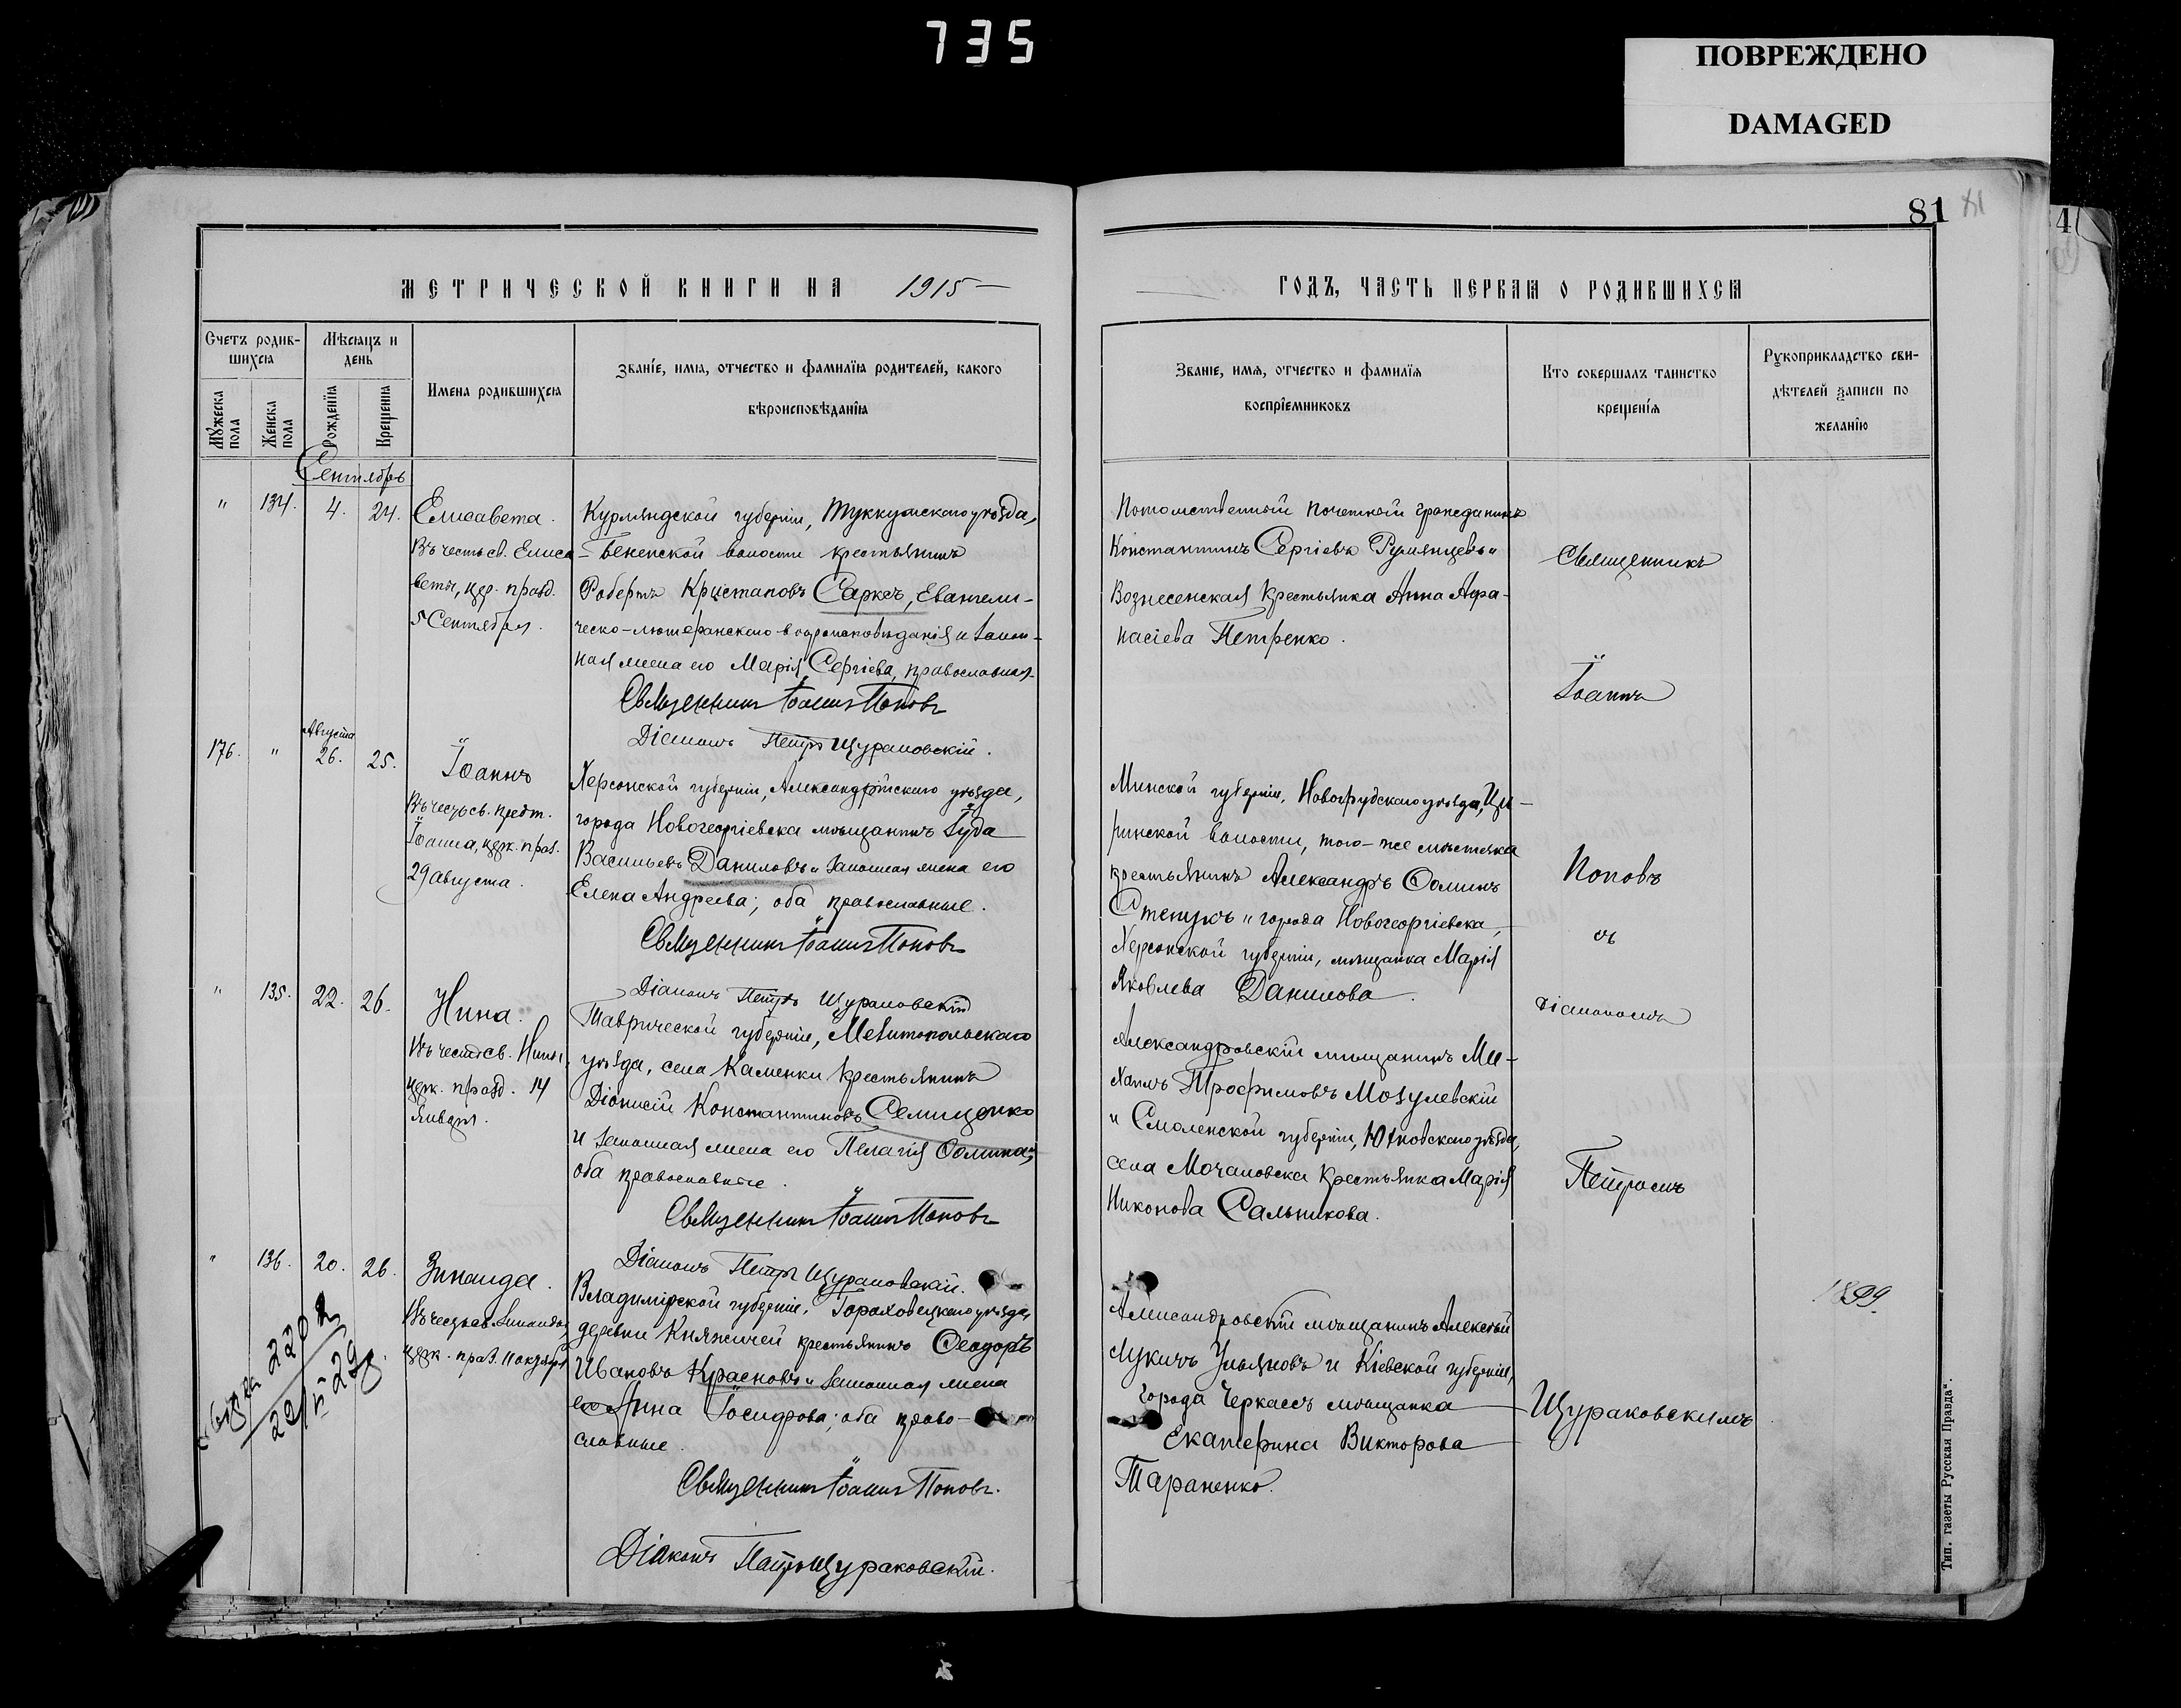 735
ПОВРЕЖДЕНО
DAMAGED
81
4
МЕТРИЧЕСКОЙ КНИГИ НА 1915
ГОДЪ, ЧАСТЬ ПЕРВАЯ О РОДИВШИХСЯ
Счетъ родив-
шихся
Мѣсяцъ и
день
Мужеска пола
Женска пола
Рожденїя
Крещенїя
Имена родившихся
Званїе, имя, отчество и фамилїя родителей, какого
вѣроисповѣданїя
Званїе, имя, отчество и фамилїя
воспрїемниковъ
Кто совершалъ таинство
крещенїя
Рукоприкладство сви-
дѣтелей записи по
желанїю
Сентябрь
" 134. 4. 24.
Елисавета.
Въ честь св. Елиса
веты, цер. празд.
5 Сентября.
Курляндской губерніи, Туккумскаго уѣзда,
волости крестьянинъ
Робертъ Кристаповъ Саркъ, Евангели-
ческо-лютеранскаго вѣроисповѣданія и закон-
ная жена его Марія Сергіева, православная.
Священникъ Іоаннъ Поповъ
Діаконъ Петръ Щураковскій.
Потомственный почетный гражданинъ
Константинъ Сергіевъ Румянцевъ и
Вознесенская крестьянка Анна Афа-
насіева Петренко.
Августа
176. " 26. 25.
Іоаннъ
Въ честь св. предт.
Іоанна, церк. праз.
29 августа.
Херсонской губерніи, Александрійскаго уѣзда,
города Новогеоргіевска мѣщанинъ Іуда
Васильевъ Даниловъ и законная жена его
Елена Андреева; оба православные.
Священникъ Іоаннъ Поповъ
Діаконъ Петръ Щураковскій
Минской губерніи, Новогрудскаго уѣзда, Цы-
ринской волости, того-же мѣстечка
крестьянинъ Александръ Ѳоминъ
Стецукъ и города Новогеоргіевска,
Херсонской губерніи, мѣщанка Марія
Яковлева Данилова.
" 135. 22. 26.
Нина.
Въ честь св. Нины,
церк. празд. 14
Января.
Таврической губерніи, Мелитопольскаго
уѣзда, села Каменки крестьянинъ
Діонисій Константиновъ Семиценко
и законная жена его Пелагія Ѳомина;
оба православные.
Священникъ Іоаннъ Поповъ
Діаконъ Петръ Щураковскій.
Александровскій мѣщанинъ Ми-
хаилъ Трофимовъ Мозулевскій
и Смоленской губерніи, Юхновскаго уѣзда,
села Мочаловска крестьянка Марія
Никонова Сальникова.
" 136. 20. 26.
Зинаида.
Въ честь св. Зинаиды,
церк. праз. 11 октября
Владимірской губерніи, Гороховецкаго уѣзда,
деревни Княжичей крестьянинъ Ѳеодоръ
Ивановъ Красновъ и законная жена
его Анна Іосифова; оба право-
славные.
Священникъ Іоаннъ Поповъ.
Діаконъ Петръ Щураковскій.
Александровскій мѣщанинъ Алексѣй
Лукичъ Ульяновъ и Кіевской губерніи,
города Черкассъ мѣщанка
Екатерина Викторова
Тараненко.
Священникъ
Іоаннъ
Поповъ
съ
діакономъ
Петромъ
Щураковскимъ
1899.
Тип. газеты Русская Правда".